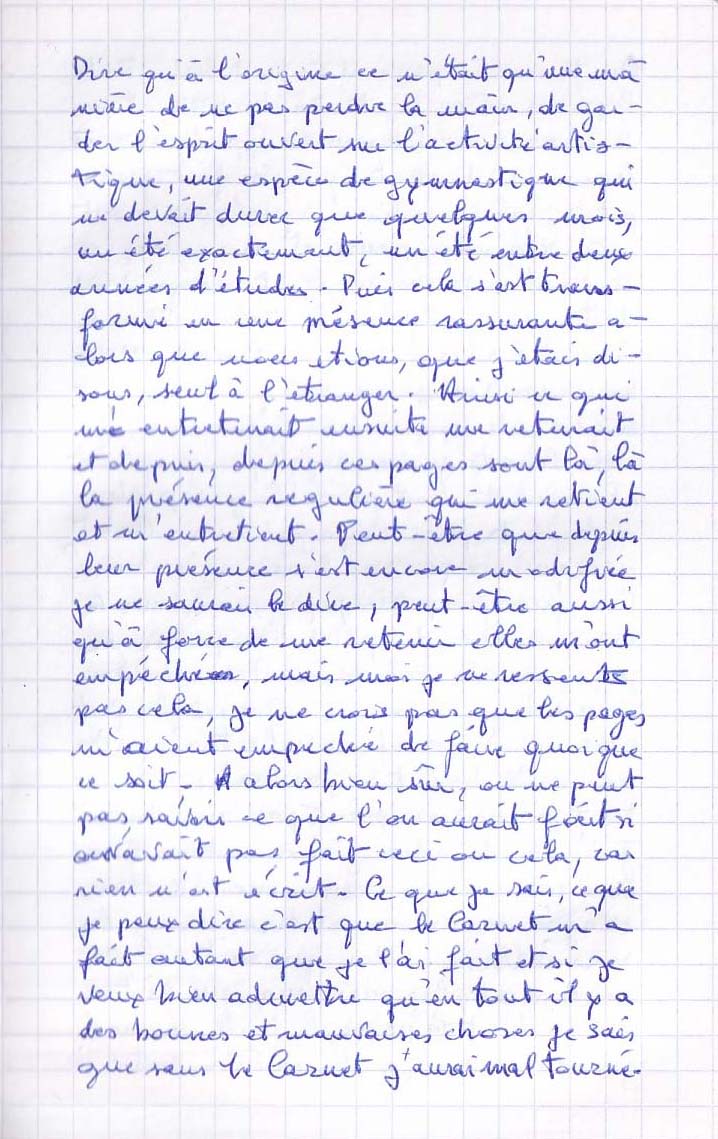 Dire qu'à l'origine ce n'était qu'une ma
nière de ne pas perdre la main, de gar-
der l'esprit ouvert sur l'activité artis-
tique, une espèce de gymnastique qui
ne devait durer que quelques mois,
un été exactement, un été entre deux
années d'études. Puis cela s'est trans-
formé en une présence rassurante a-
lors que nous étions, que j'étais di-
sons, seul à l'étranger. Ainsi ce qui
m'entretenait ensuite me retenait
et depuis, depuis ces pages sont là, là
la présence regulière qui me retient
et m'entretient. Peut-être que depuis
leur présence s'est encore modifiée
je ne saurai le dire, peut-être aussi
qu'à force de me retenir elles m'ont
empéché, mais moi je ne ressens
pas cela, je ne crois pas que les pages
m'aient empeché de faire quoique
ce soit. Alors bien sûr, on ne peut
pas savoir ce que l'on aurait fait si
on n'avait pas fait ceci ou cela, car
rien n'est écrit. Ce que je sais, ce que
je peux dire c'est que le Carnet m'a
fait autant que je l'ai fait et si je
veux bien admettre qu'en tout il y a
des bonnes et mauvaises choses je sais
que sans le Carnet j'aurai mal tourné.